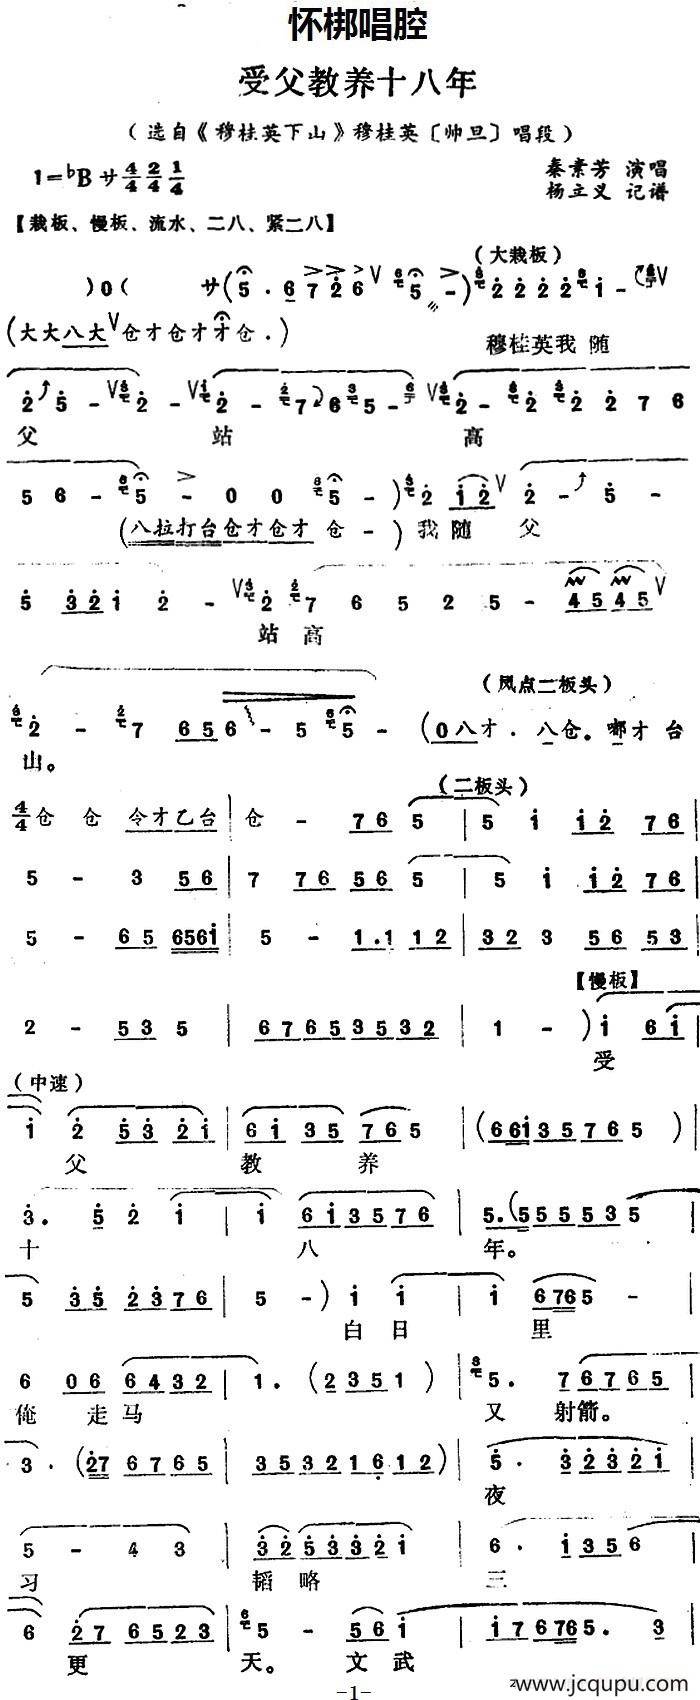 怀梆唱腔
受父教养十八年
(选自《穆桂英下山》穆桂英〔帅旦〕唱段)
1=♭B サ 4/4 2/4 1/4
秦素芳 演唱
杨立义 记谱
【栽板、慢板、流水、二八、紧二八】
(大栽板)
)0( サ(5·6 7 2 6 ∨ 5 -) 2 2 2 2 i -
(大大八大∨仓才仓才才仓·)
穆桂英我 随
2 5 - ∨ 2 - ∨ 2 - 7 6 5 - ∨ 2 - 2 2 2 7 6
父 站 高
5 6 - 5 - 0 0 5 -) 2 i 2 ∨ 2 - 5 -
(八拉打台仓才仓才 仓 -) 我 随 父
5 3 2 i 2 - ∨ 2 7 6 5 2 5 - 4 5 4 5 ∨
站 高
(凤点二板头)
2 - 7 6 5 6 - 5 5 - (0八才·八仓。嘟才台
山。
(二板头)
4/4 仓 仓 令才乙台 | 仓 - 7 6 5 | 5 i i 2 7 6 |
5 - 3 5 6 | 7 7 6 5 6 5 | 5 i i 2 7 6 |
5 - 6 5 6 5 6 i | 5 - 1·1 1 2 | 3 2 3 5 6 5 3 |
【慢板】
2 - 5 3 5 | 6 7 6 5 3 5 3 2 | 1 -) i 6 i |
受
(中速)
i 2 5 3 2 i | 6 i 3 5 7 6 5 | (6 6 i 3 5 7 6 5) |
父 教 养
3· 5 2 i | i 6 i 3 5 7 6 | 5·(5 5 5 5 3 5 |
十 八 年。
5 3 5 2 3 7 6 | 5 -) i i | i 6 7 6 5 - |
白 日 里
6 0 6 6 4 3 2 | 1·(2 3 5 1) | 5· 7 6 7 6 5 |
俺 走 马 又 射 箭。
3·(2 7 6 7 6 5 | 3 5 3 2 1 6 1 2) | 5· 3 2 3 2 i |
夜
5 - 4 3 | 3 2 5 3 3 2 i | 6· i 3 5 6 |
习 韬 略 三
6 2 7 6 5 2 3 | 5 - 5 6 i | i 7 6 7 6 5· 3 |
更 天。 文 武
-1-
www.jcqupu.com